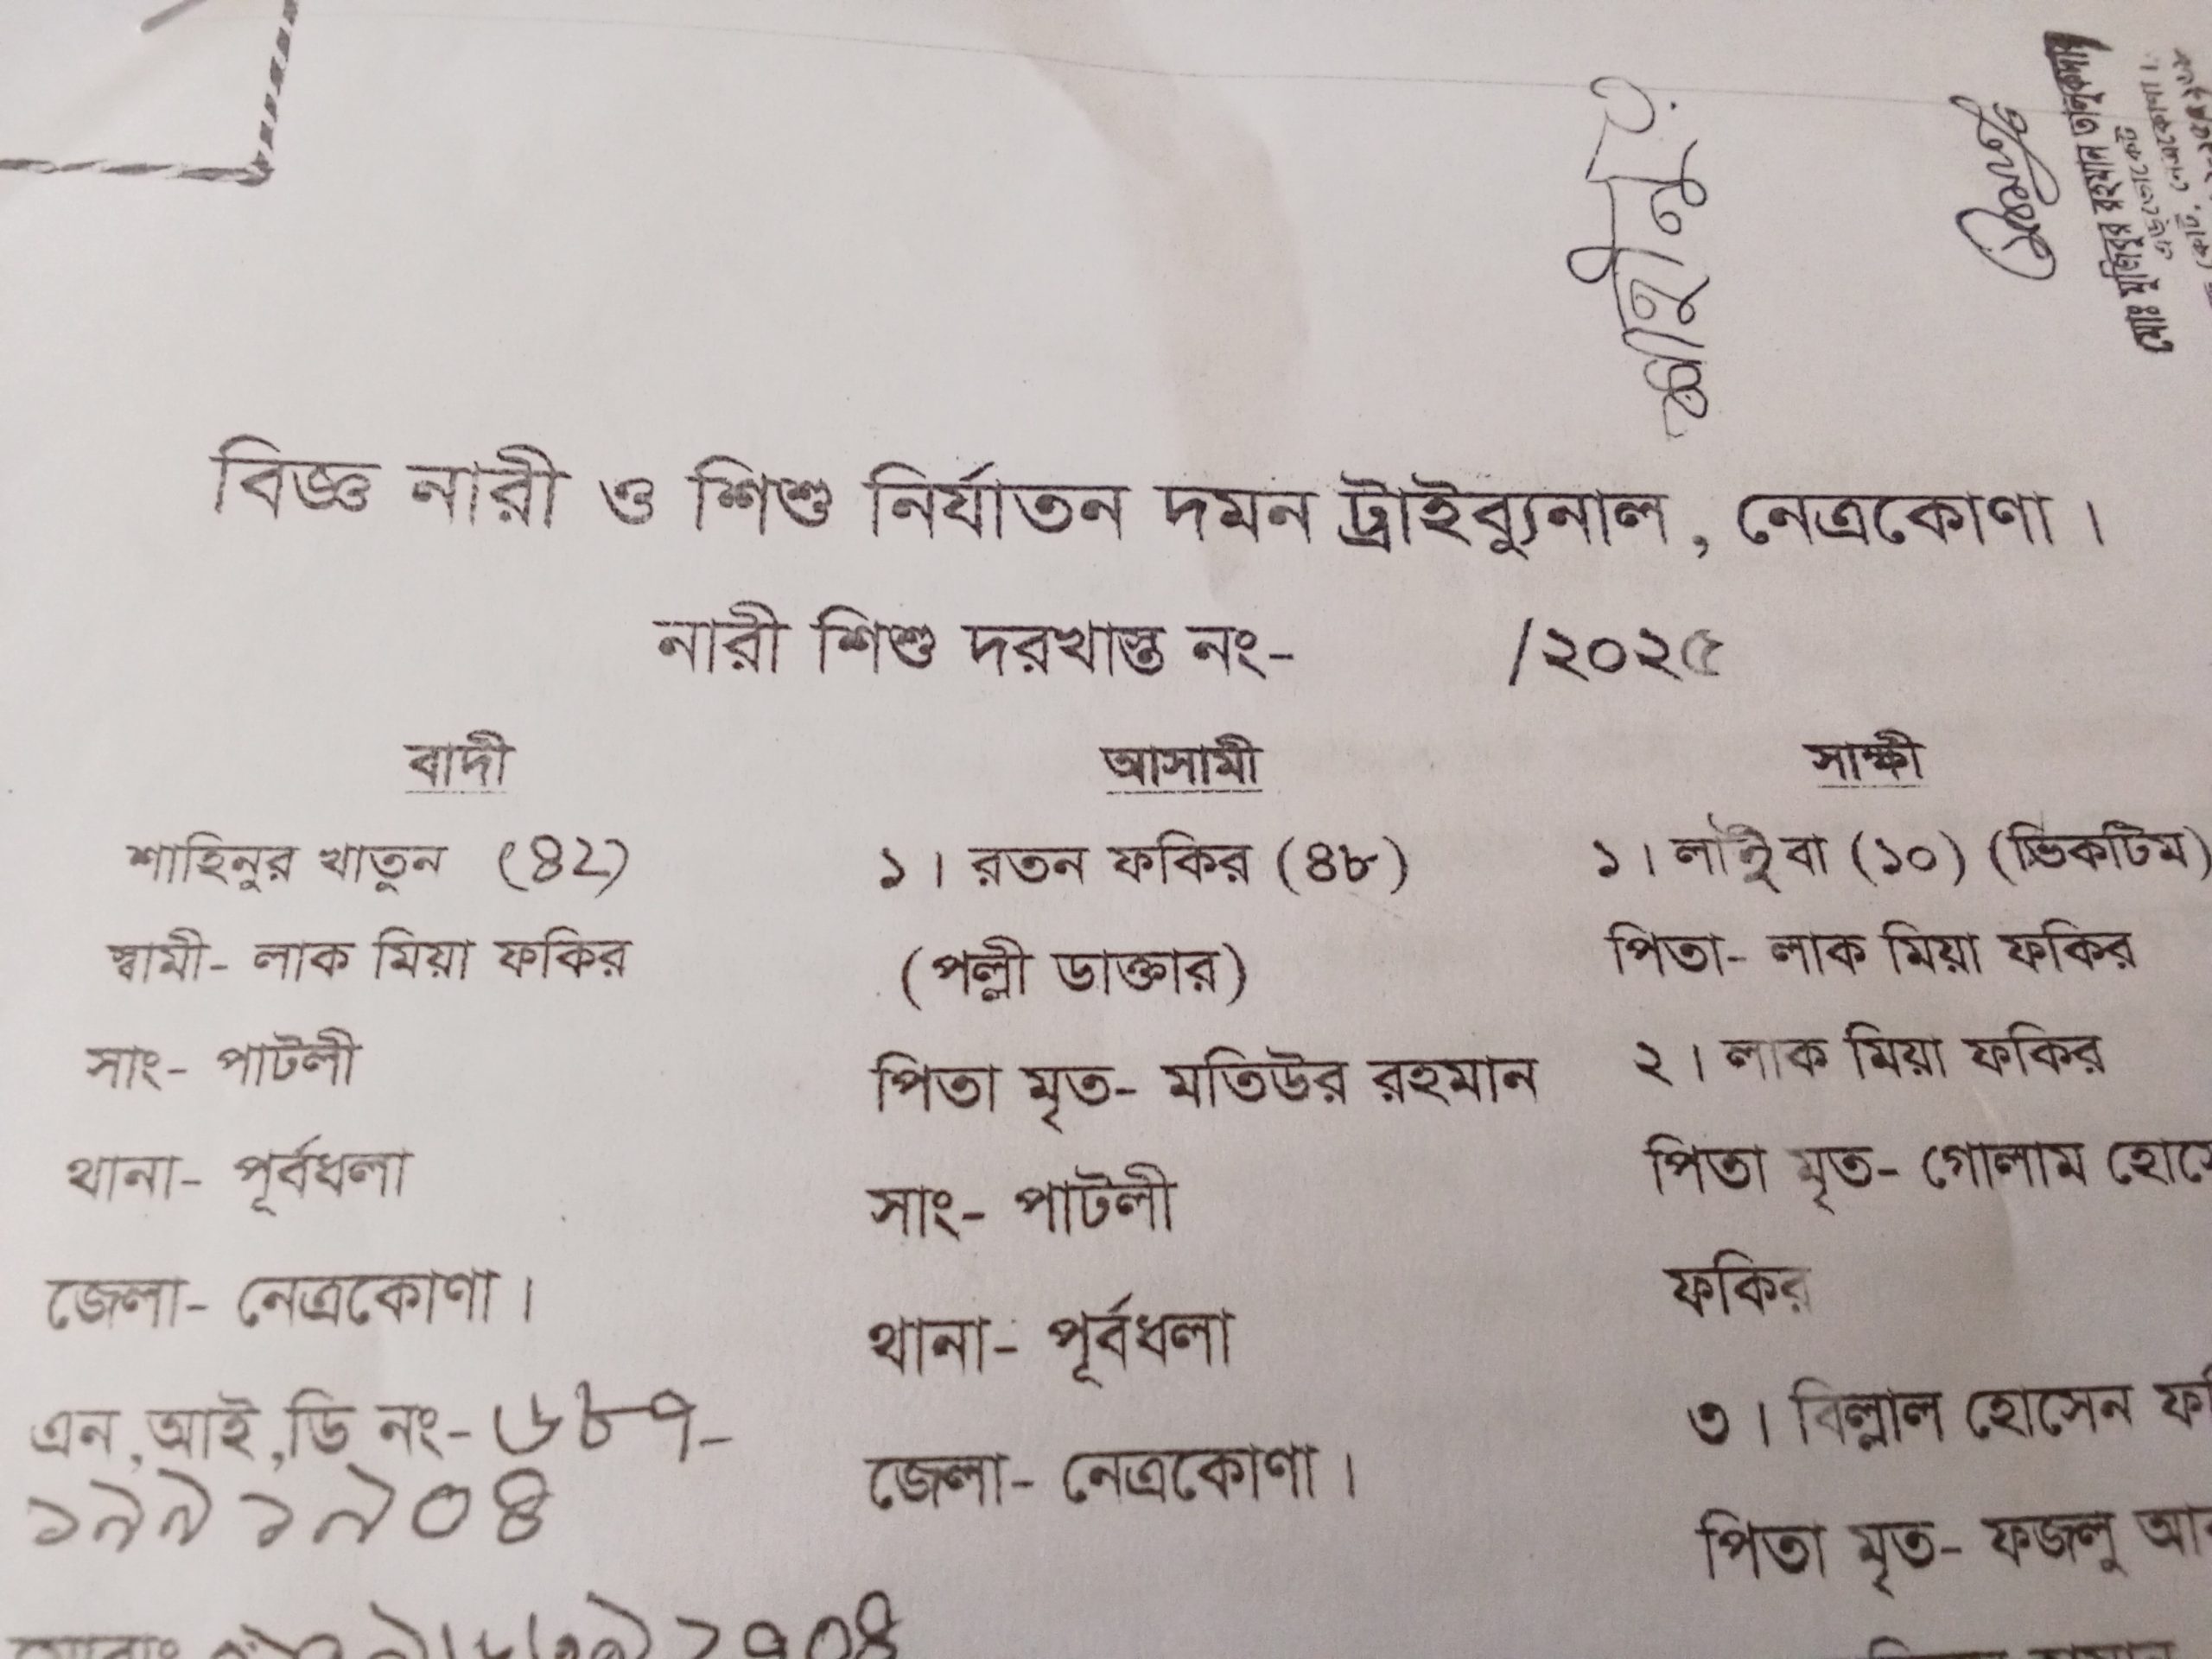 মোঃ মুজিবুর রহমান তালুকদার
এডভোকেট
বিজ্ঞ নারী ও শিশু নির্যাতন দমন ট্রাইব্যুনাল, নেত্রকোণা।
নারী শিশু দরখাস্ত নং- /২০২৫
বাদী
শাহিনুর খাতুন (৪২)
স্বামী- লাক মিয়া ফকির
সাং- পাটলী
থানা- পূর্বধলা
জেলা- নেত্রকোণা।
এন,আই,ডি নং- ৬৮৭-
১৯৯১৯০৪
আসামী
১। রতন ফকির (৪৮)
(পল্লী ডাক্তার)
পিতা মৃত- মতিউর রহমান
সাং- পাটলী
থানা- পূর্বধলা
জেলা- নেত্রকোণা।
সাক্ষী
১। লাইবা (১০) (ভিকটিম)
পিতা- লাক মিয়া ফকির
২। লাক মিয়া ফকির
পিতা মৃত- গোলাম
ফকির
৩। বিল্লাল হোসেন
পিতা মৃত- ফজলু